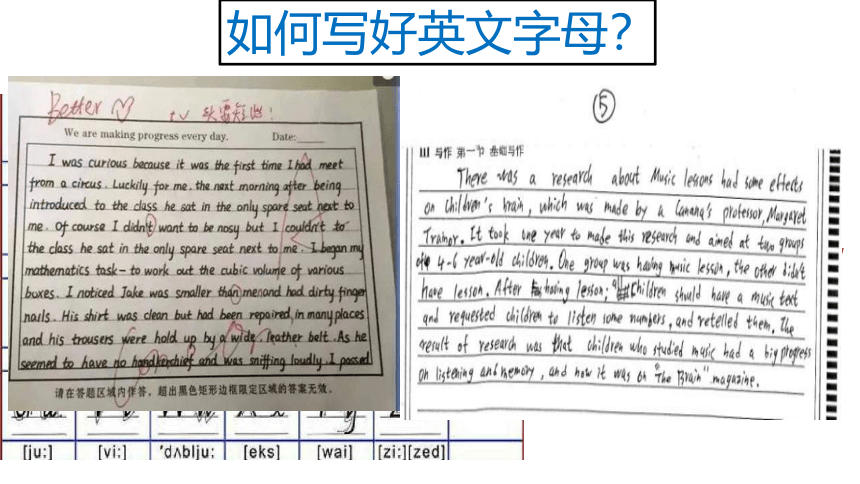 如何写好英文字母?
Better
头要短些!
We are making progress every day. Date:
I was curious because it was the first time I had meet
from a circus. Luckily for me. the next morning after being
introduced to the class he sat in the only spare seat next to
me. Of course I didn't want to be nosy but I couldn't to
the class he sat in the only spare seat next to me. I began my
mathematics task - to work out the cubic volume of various
boxes. I noticed Jake was smaller than men and had dirty finger
nails. His shirt was clean but had been repaired in many places
and his trousers were hold up by a wide. leather belt. As he
seemed to have no handkerchief and was sniffing loudly. I passed
请在答题区域内作答,超出黑色矩形边框限定区域的答案无效。
⑤
III 写作 第一节 基础写作
There was a research about Music lessons had some effects
on children's brain, which was made by a Canana's professor, Margaret
Trainor. It took one year to made this research and aimed at two groups
4-6 year-old children. One group was having music lesson, the other didn't
have lesson. After having lesson, children should have a music text
and requested children to listen some numbers, and retelled them. The
result of research was that children who studied music had a big progress
on listening and memory, and now it was on "The Brain" magazine.
[ju:] [vi:] 'dʌblju: [eks] [wai] [zi:][zed]